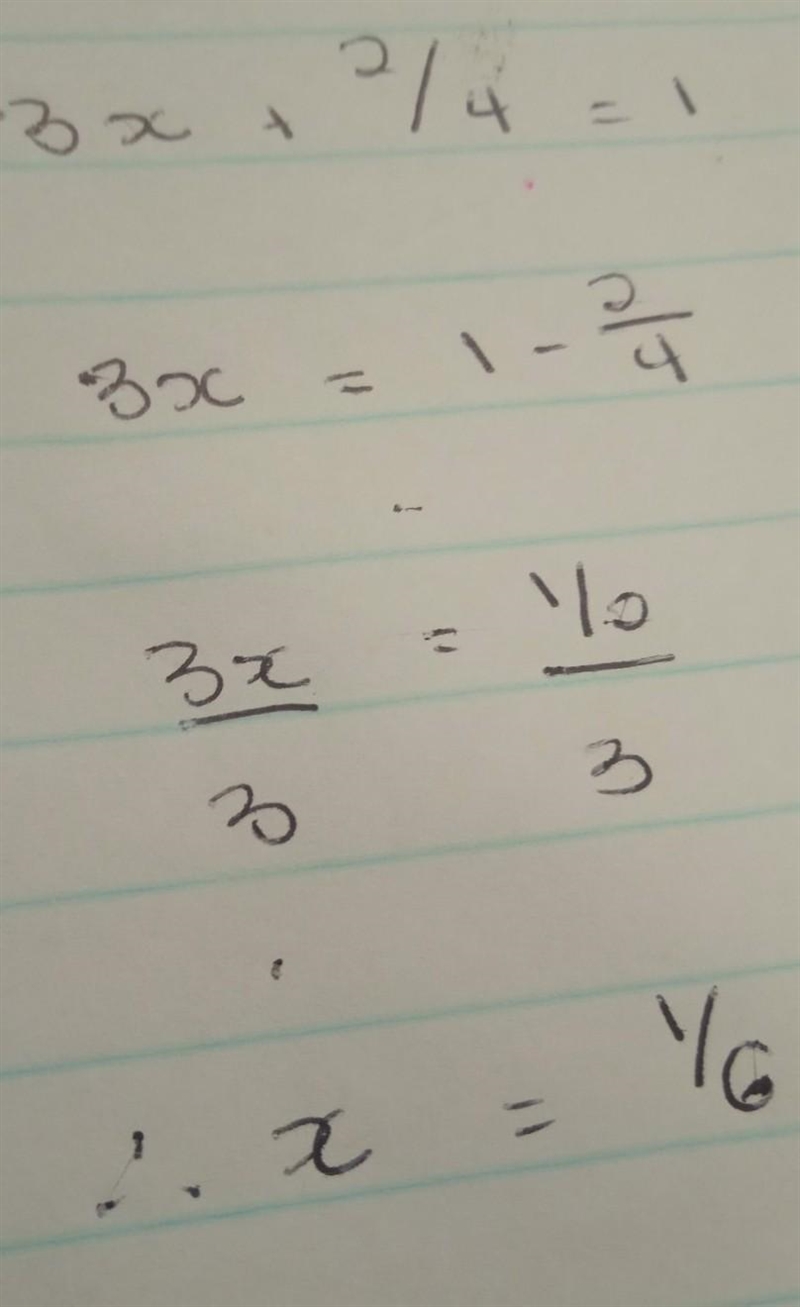 3x + 2/4 = 1
3x = 1 - 2/4
3x/3 = 1/2/3
∴ x = 1/6